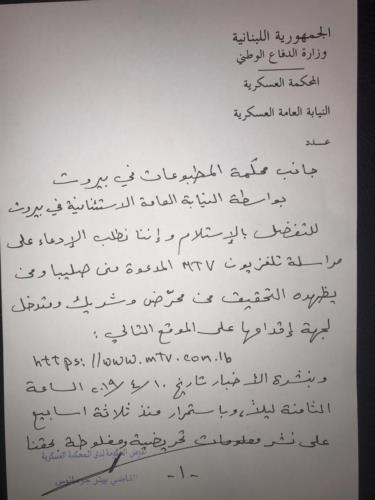 الجمهورية اللبنانية
وزارة الدفاع الوطني
المحكمة العسكرية
النيابة العامة العسكرية
عدد
جانب محكمة المطبوعات في بيروت
بواسطة النيابة العامة الاستئنافية في بيروت
للتفضل بالإستلام وإننا نطلب الإدعاء على
مراسلة تلفزيون MTV المدعوة منى صليبا ومن
يظهره التحقيق من محرّض وشريك ومتدخل
لجهة إقدامها على الموقع التالي :
https://www.mtv.com.lb
وبنشرة الأخبار تاريخ ٢٠١٩/٤/١٠ الساعة
الثامنة ليلاً، وباستمرار منذ ثلاثة اسابيع
على نشر معلومات تحريضية ومغلوطة بحقنا
مفوض الحكومة لدى المحكمة العسكرية
القاضي بيتر جرمانوس
-١-